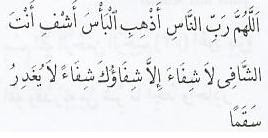 اَللَّهُمَّ رَبِّ النَّاسِ أَذْهِبِ الْبَأْسَ أَشْفِ أَنْتَ
الشَّافِى لَا شِفَاءَ إِلَّا شِفَاؤُكَ شِفَاءً لَا يُغَدِرُ
سَقَمًا